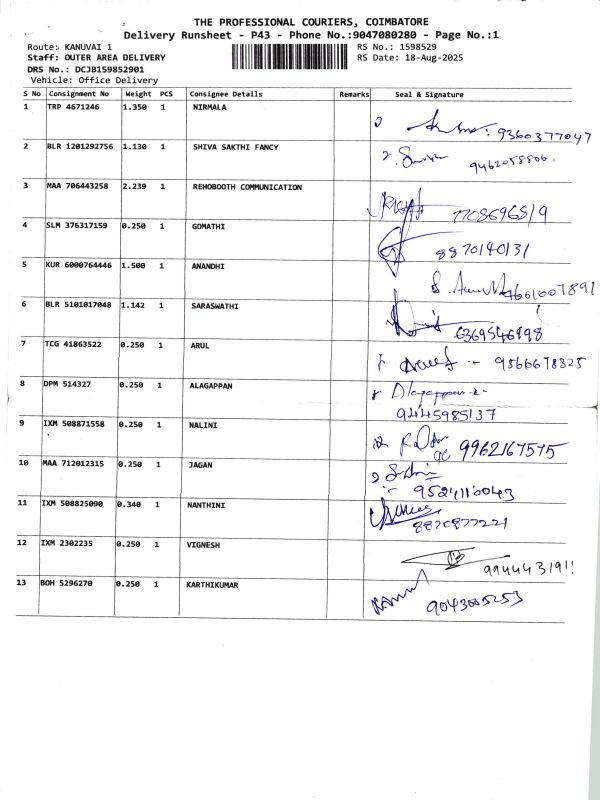 THE PROFESSIONAL COURIERS, COIMBATORE
Delivery Runsheet - P43 - Phone No.:9047080280 - Page No.:1
Route: KANUVAI 1 RS No.: 1598529
Staff: OUTER AREA DELIVERY RS Date: 18-Aug-2025
DRS No.: DCJB159852901
Vehicle: Office Delivery
S No Consignment No Weight PCS Consignee Details Remarks Seal & Signature
1 TRP 4671246 1.350 1 NIRMALA
9360377047
2 BLR 1201292756 1.130 1 SHIVA SAKTHI FANCY
3 MAA 706443258 2.239 1 REHOBOOTH COMMUNICATION
7708696819
4 SLM 376317159 0.250 1 GOMATHI
8870140131
5 KUR 6000764446 1.500 1 ANANDHI
6 BLR 5101017048 1.142 1 SARASWATHI
7 TCG 41863522 0.250 1 ARUL
9566678325
8 DPM 514327 0.250 1 ALAGAPPAN
9445985137
9 IXM 508871558 0.250 1 NALINI
9962167575
10 MAA 712012315 0.250 1 JAGAN
11 IXM 508825090 0.340 1 NANTHINI
8870877221
12 IXM 2302235 0.250 1 VIGNESH
13 BOH 5296270 0.250 1 KARTHIKUMAR
9043005253